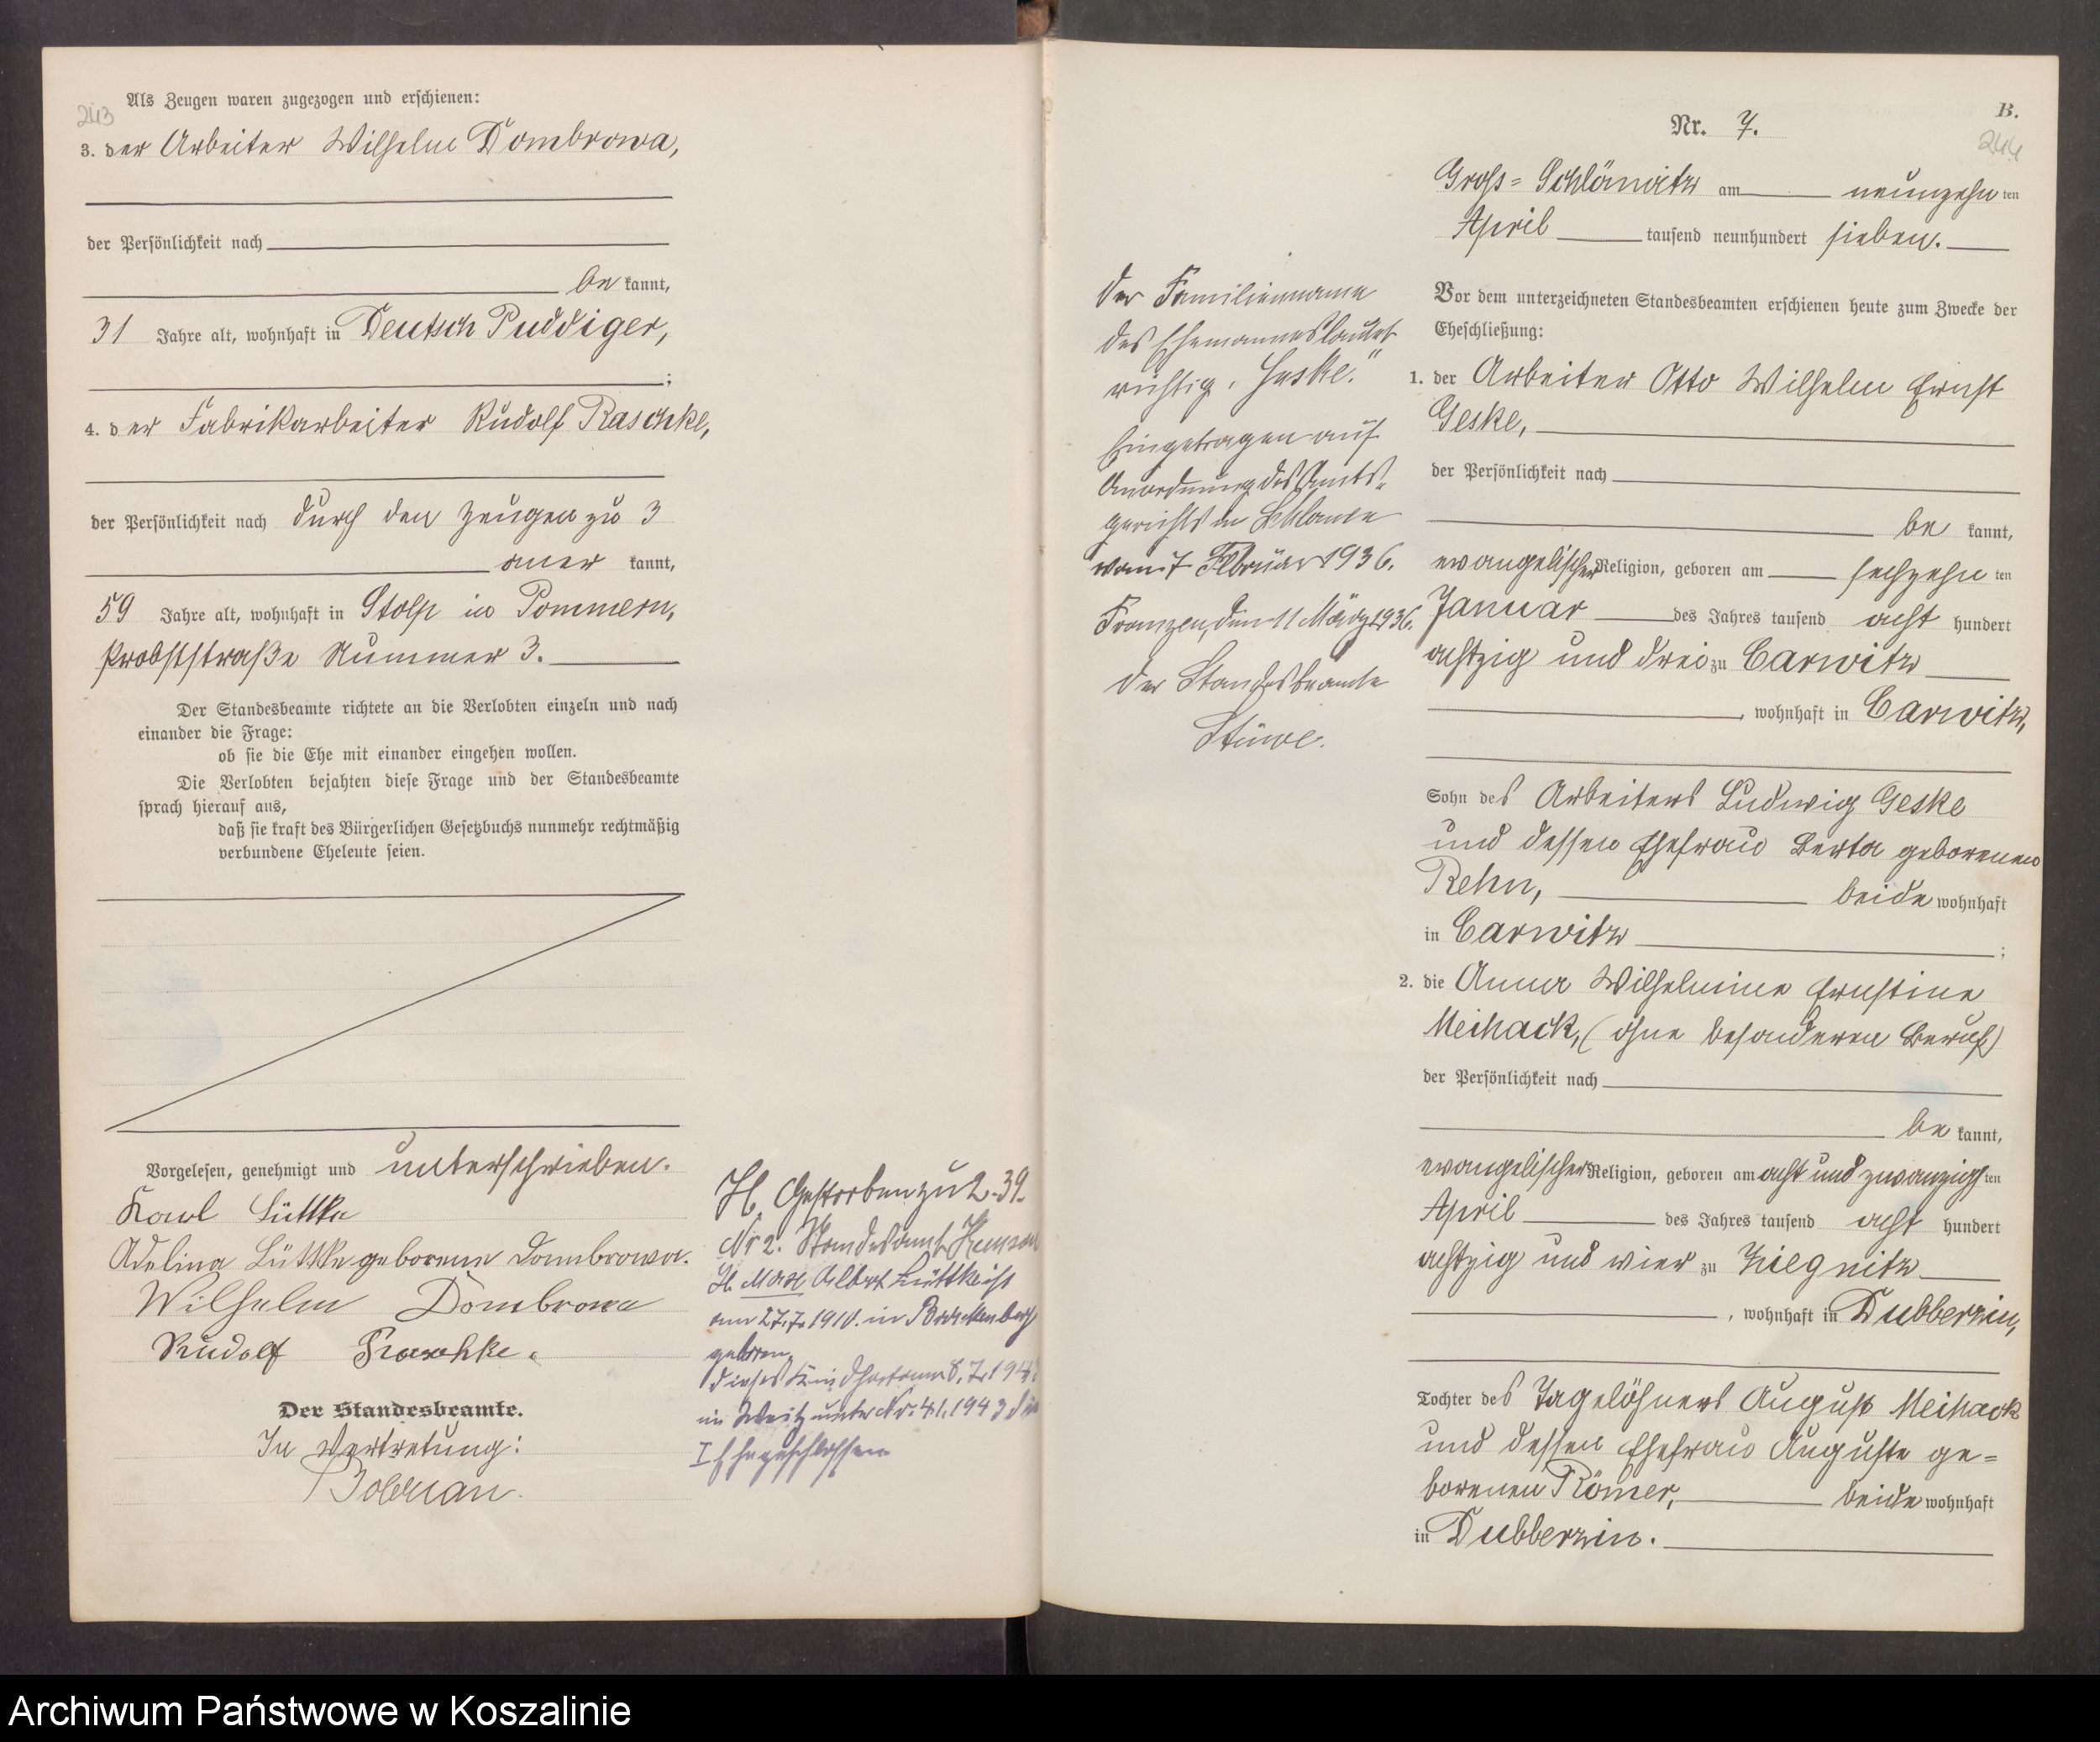 243
Als Zeugen waren zugezogen und erschienen:
3. der Arbeiter Wilhelm Dombrowa,
der Persönlichkeit nach
be kannt,
31 Jahre alt, wohnhaft in Deutsch Puddiger,
;
4. der Fabrikarbeiter Rudolf Raschke,
der Persönlichkeit nach durch den Zeugen zu 3
aner kannt,
59 Jahre alt, wohnhaft in Stolp in Pommern,
Probststraße Nummer 3.
Der Standesbeamte richtete an die Verlobten einzeln und nach
einander die Frage:
ob sie die Ehe mit einander eingehen wollen.
Die Verlobten bejahten diese Frage und der Standesbeamte
sprach hierauf aus,
daß sie kraft des Bürgerlichen Gesetzbuchs nunmehr rechtmäßig
verbundene Eheleute seien.
Vorgelesen, genehmigt und unterschrieben.
Karl Lüttke
Adeline Lüttke geborene Dombrowa.
Wilhelm Dombrowa
Rudolf Raschke.
Der Standesbeamte.
In Vertretung:
H. Gestorben zu 2. 39.
Nr 2. Standesamt
H. Max Albert Lüttke ist
am 27.7.1910. in
geboren.
dieses Kind hat am 8.7.194
in unter Nr. 41.1943 die
I Ehe geschlossen
B.
244
Nr. 7.
Gross-Schlönwitz am neunzehn ten
April tausend neunhundert sieben.
Vor dem unterzeichneten Standesbeamten erschienen heute zum Zwecke der
Eheschließung:
1. der Arbeiter Otto Wilhelm Ernst
Geske,
der Persönlichkeit nach
be kannt,
evangelischer Religion, geboren am sechzehn ten
Januar des Jahres tausend acht hundert
achtzig und drei zu Carwitz
, wohnhaft in Carwitz,
Sohn des Arbeiters Ludwig Geske
und dessen Ehefrau Berta geborenen
Rehn, beide wohnhaft
in Carwitz ;
2. die Anna Wilhelmine Ernstine
Meihack, (ohne besonderen Beruf)
der Persönlichkeit nach
be kannt,
evangelischer Religion, geboren am acht und zwanzigs ten
April des Jahres tausend acht hundert
achtzig und vier zu Ziegnitz
, wohnhaft in Dubberzin,
Tochter des Tagelöhners August Meihack
und dessen Ehefrau Auguste ge=
borenen Römer, beide wohnhaft
in Dubberzin.
Der Familienname
des Ehemannes lautet
richtig „Jeske."
Eingetragen auf
Anordnung des Amts=
gerichts in Schlawe
vom 7 Februar 1936.
Franzen, den 11 März 1936.
Der Standesbeamte
Stüwe.
Archiwum Państwowe w Koszalinie